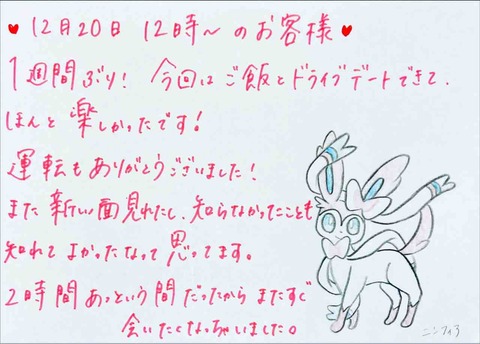 ♥12月20日 12時〜のお客様♥
1週間ぶり! 今回はご飯とドライブデートできて、
ほんと楽しかったです!
運転もありがとうございました!
また新しい面見れたし、知らなかったことも
知れてよかったなって思ってます。
2時間あっという間だったからまたすぐ
会いたくなっちゃいました。
ニンフィア